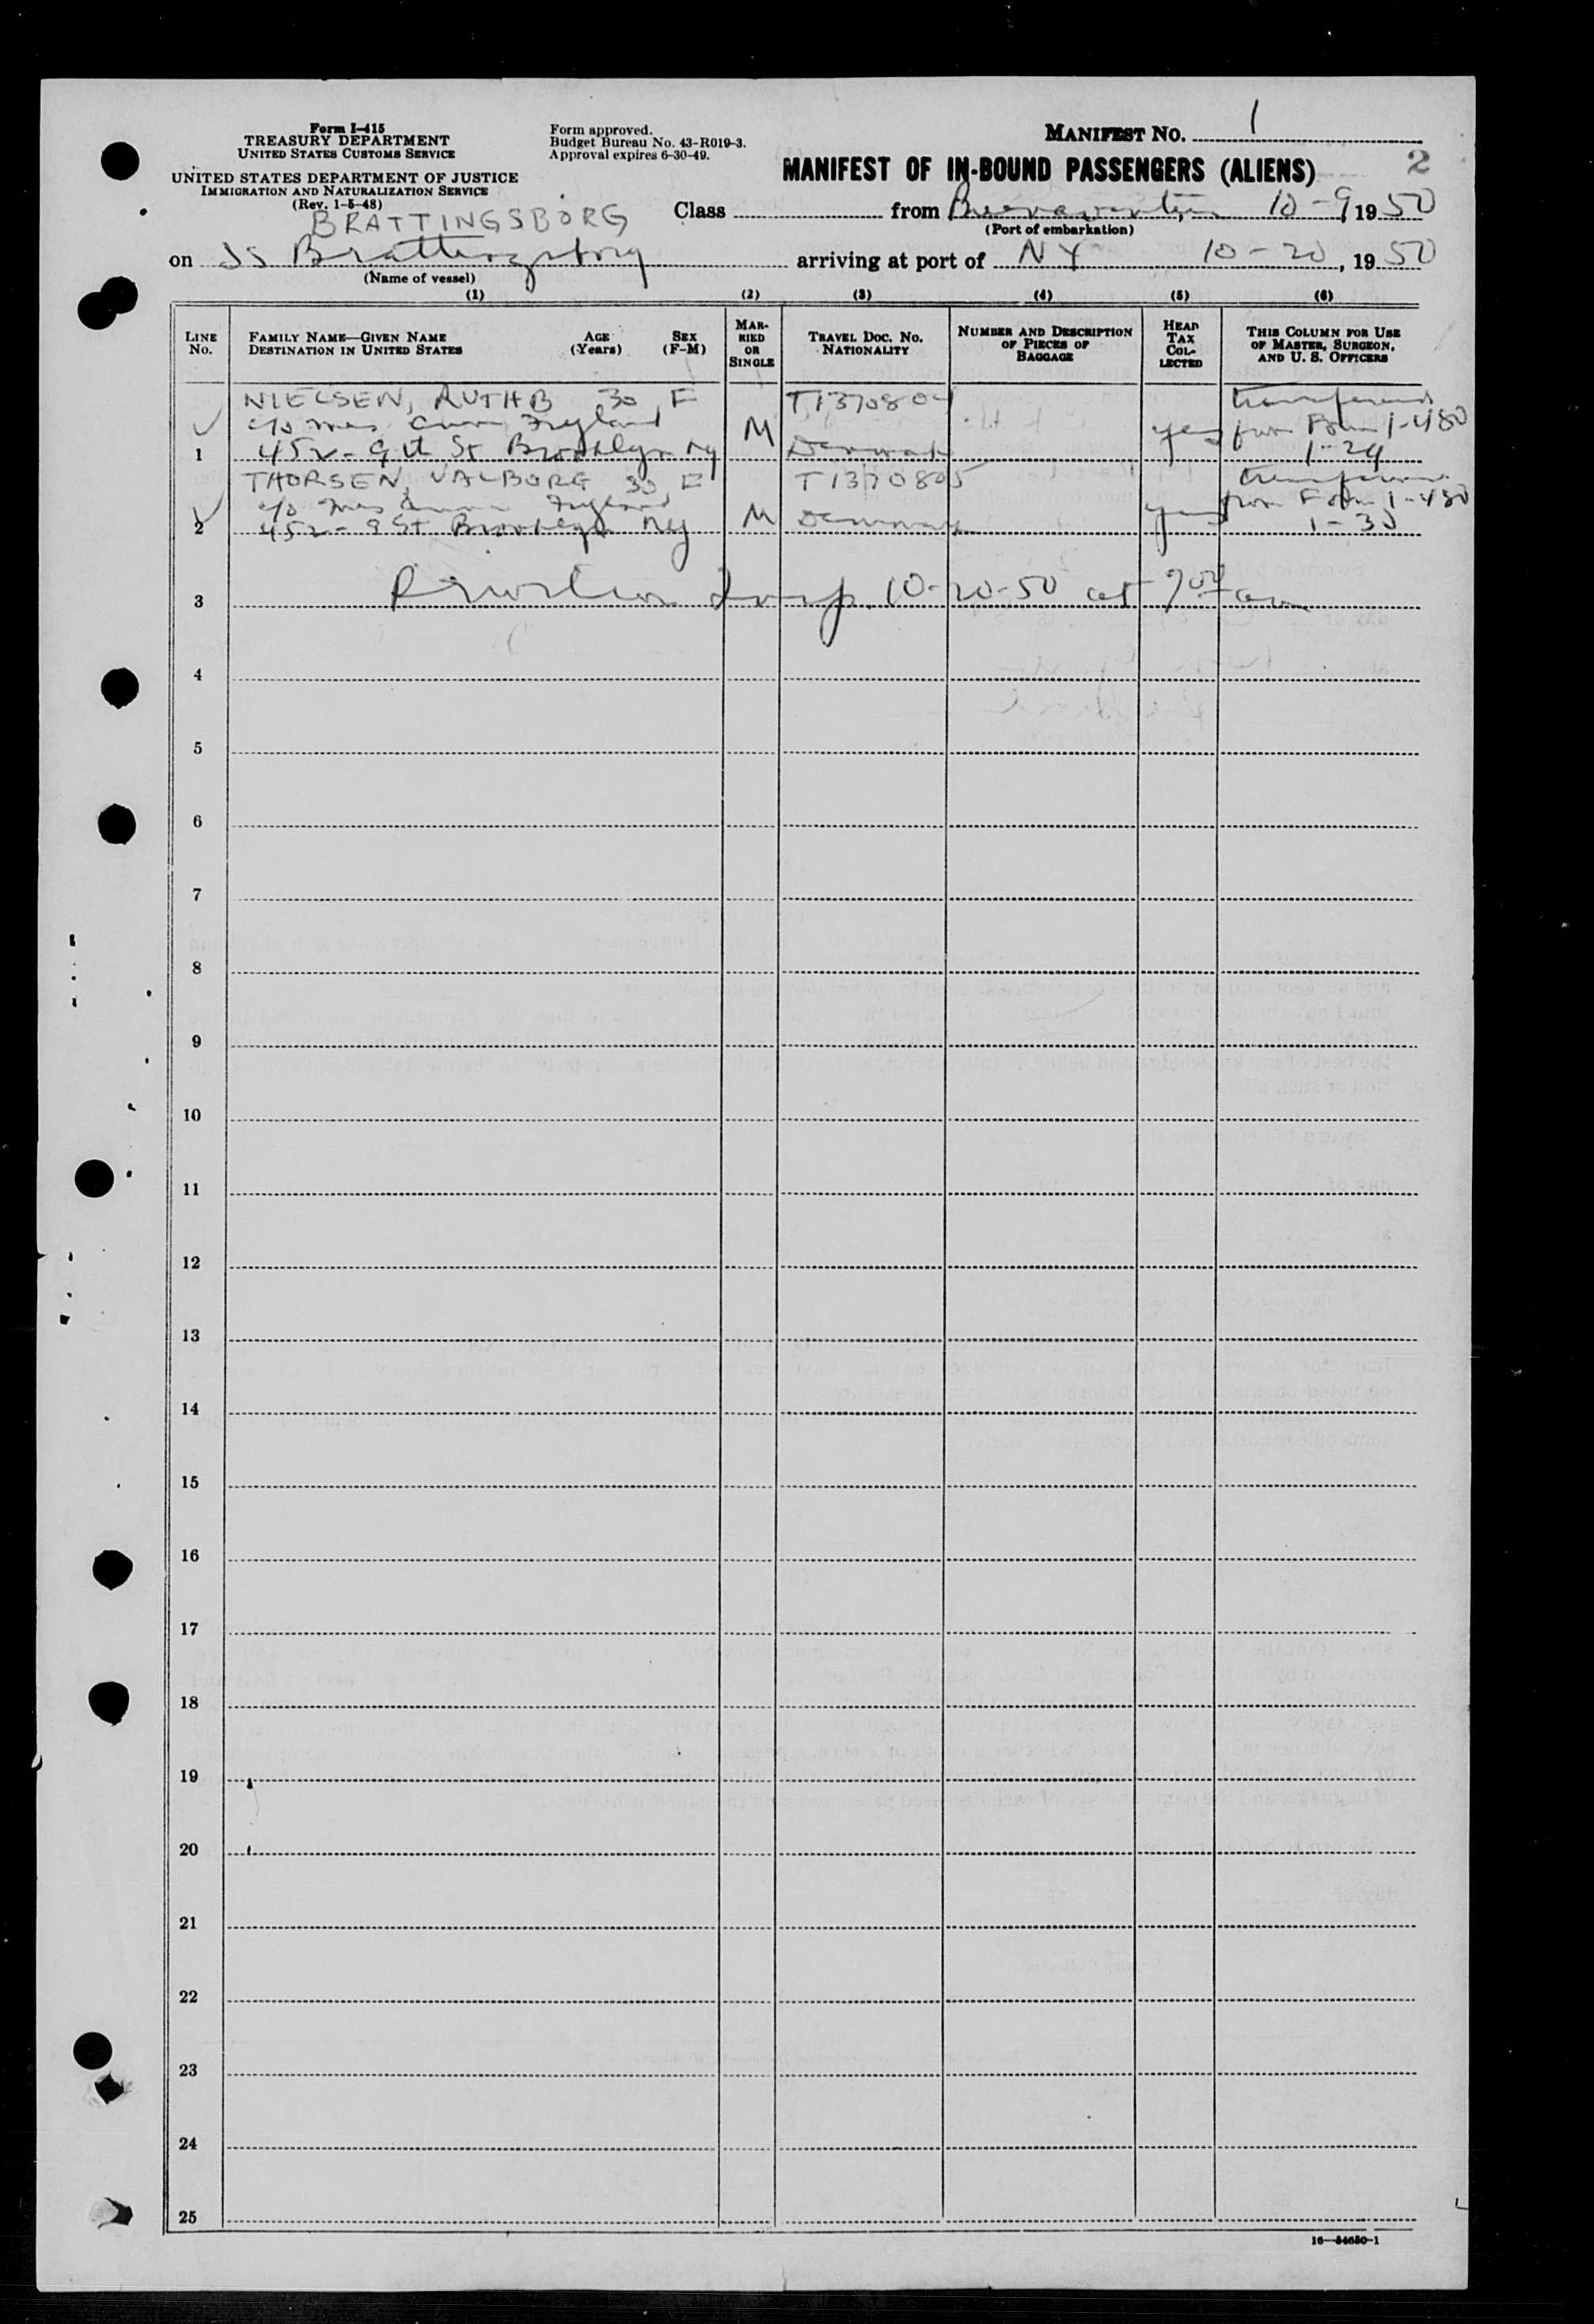 Form I-415
TREASURY DEPARTMENT
UNITED STATES CUSTOMS SERVICE
UNITED STATES DEPARTMENT OF JUSTICE
IMMIGRATION AND NATURALIZATION SERVICE
(Rev. 1-5-48)
Form approved.
Budget Bureau No. 43-R019-3.
Approval expires 6-30-49.
MANIFEST NO. 1
MANIFEST OF IN-BOUND PASSENGERS (ALIENS) 2
BRATTINGSBORG
Class from Buenaventura 10-9 1950
(Port of embarkation)
on SS Brattingsborg arriving at port of NY 10-20, 1950
(Name of vessel)
(1) (2) (3) (4) (5) (6)
LINE No.
FAMILY NAME—GIVEN NAME
DESTINATION IN UNITED STATES
AGE (Years)
SEX (F-M)
MARRIED OR SINGLE
TRAVEL DOC. NO. NATIONALITY
NUMBER AND DESCRIPTION OF PIECES OF BAGGAGE
HEAD TAX COLLECTED
THIS COLUMN FOR USE OF MASTER, SURGEON, AND U. S. OFFICERS
NIELSEN, RUTH B 30, F T1370804 transferred
c/o Mrs Anna M yes from Form 1-480
1 452-9th St Brooklyn NY Denmark 1-29
THORSEN, VALBORG 30, F T1370805 transferred
c/o Mrs Anna M yes from Form 1-480
2 452-9 St Brooklyn NY Denmark 1-30
3 10-20-50 at 9 am
4
5
6
7
8
9
10
11
12
13
14
15
16
17
18
19
20
21
22
23
24
25
16—54650-1